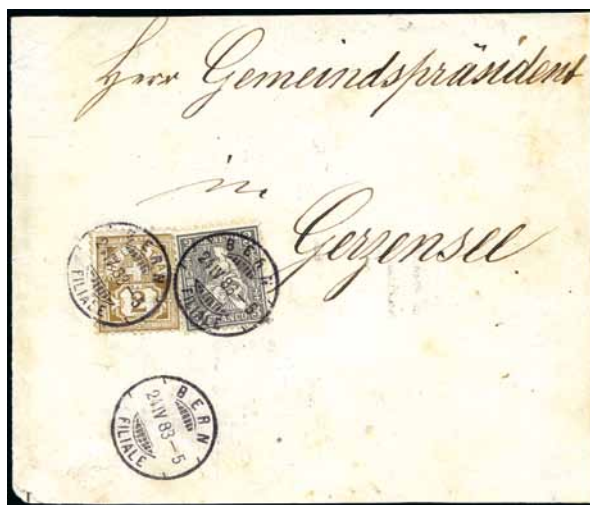 Herr Gemeindspräsident
in
Gerzensee
BERN
FILIALE
2
BERN
24 IV 83
FILIALE
BERN
24 IV 83–5
FILIALE